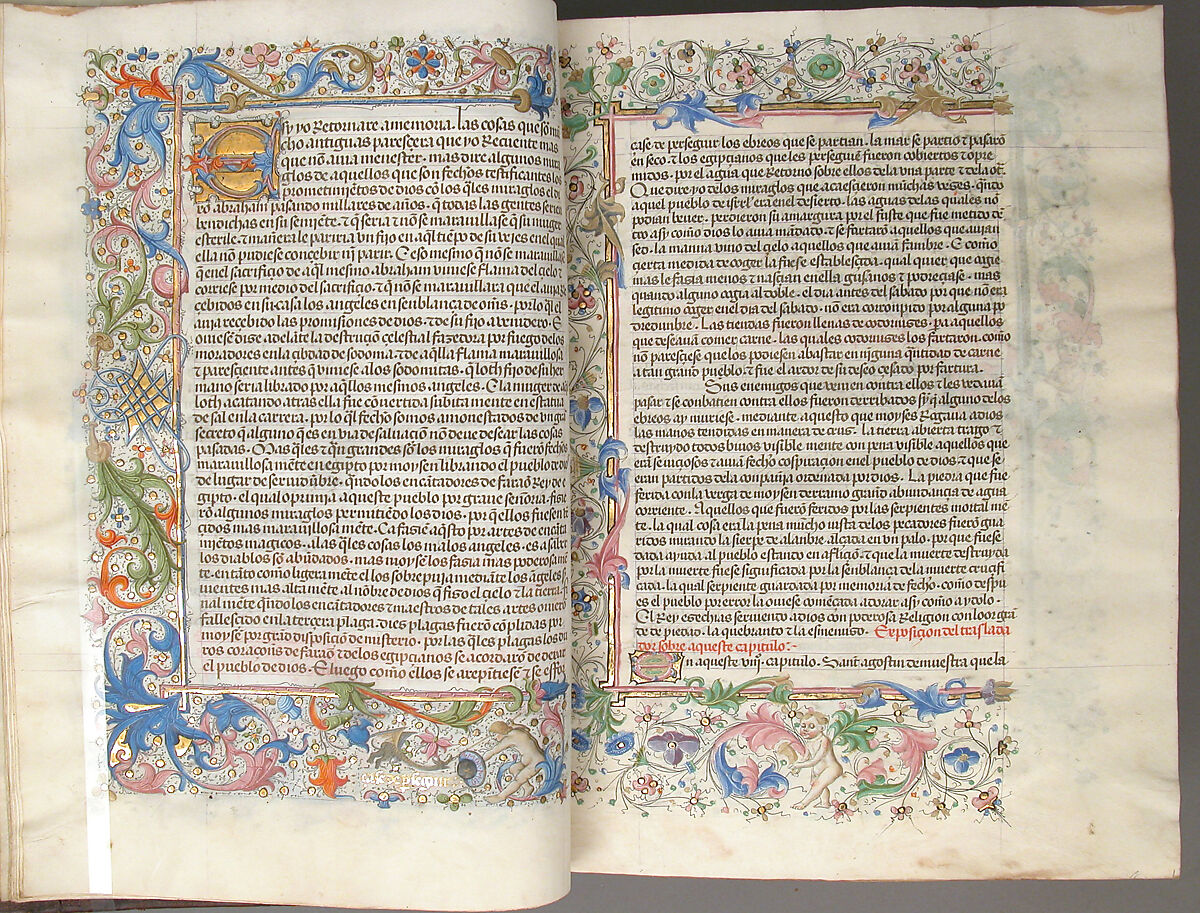 sy yo Retornare amemoria. las cosas que son mu
cho antiguas paresçera que yo Recuente mas
que nõ auia menester. mas dire algunos mira
glos de aquellos que son fechos testificantes los
prometimiẽtos de dios cõ los q̃les miraglos el di
xo abraham pasando millares de años. q̃ todas las gentes seriã
bendichas en su semiẽte. τ q̃ seria τ nõ se marauillase q̃ su muger
esterile. τ mañera le pariria vn fijo en aq̃l tiẽpo de su vejes enel qual
ella nõ pudiese conçebir nj̃ parir. E eso mesmo q̃ nõ se marauillase
q̃ enel sacrifiçio de aq̃l mesmo abraham viniese flama del çielo τ
corriese por medio del sacrifiçio. τ q̃ nõ se marauillara que el auia Re
çebidos en su casa los angeles en senblança de oms̃. por lo q̃l el
auia recebido las promisiones de dios. τ de su fijo avenidero. E
ouiese dise adelãte la destruçiõ çelestial fazedora por fuego delos
moradores en la çibdad de sodoma. τ de aq̃lla flama marauillosa
τ paresçiente antes q̃ viniese alos sodomitas. q̃ loth fijo de su her
mano seria librado por aq̃llos mesmos angeles. E la muger de
loth acatando atras ella fue cõvertida subitamente en estatua
de sal en la carrera. por lo q̃l fecho somos amonestados de vn grãd
secreto q̃ alguno q̃ es en via de saluaciõ nõ deue desear las cosas
pasadas. Mas q̃les τ q̃n grandes sõ los miraglos q̃ fuerõ fechos
marauillosa mẽte en egipto por moysen librando el pueblo de dios
de lugar de seruidũbre. q̃ndo los encãtadores de faraõ Rey de e
gipto. el qual oprimia aqueste pueblo por graue señoria. fisie
rõ algunos miraglos permitiẽdo los dios. por q̃ ellos fuesen vẽ
çidos mas marauillosa mẽte. Ca fasiẽ aq̃sto por artes de encã
tamiẽtos magicos. a las q̃les cosas los malos angeles. es a saber
los diablos sõ abiuados. mas moysẽ los fasia mas poderosa mẽ
te. en tãto como ligera mẽte el los sobre puja mediãte los ãgeles
mientes mas alta mẽte al nõbre de dios q̃ fiso el çielo τ la tierra.
nal mẽte q̃ndo los encãtadores τ maestros de tales artes ovierõ
fallesçido en la terçera plaga. dies plagas fuerõ cõplidas por
moysẽ por grãd disposiçiõ de misterio. por las q̃les plagas los du
ros coraçoñs de faraõ τ delos egipçianos se acordarõ de dexar
el pueblo de dios. E luego como ellos se arepĩtiese τ se esforça
case de perseguir los ebreos que se partian. la mar se partio τ pasarõ
en seco. τ los egipçianos que les perseguiẽ fueron cobiertos τ opre
midos. por el agua que retorno sobre ellos dela vna parte τ dela ot̃.
Que dire yo delos miraglos que acaesçieron muchas veses. q̃ndo
aquel pueblo de isrl̃ era enel desierto. las aguas delas quales nõ
podian bever. perdieron su amargura por el fuste que fue metido dẽ
tro asy como dios lo auia mãdado. τ se fartarõ aquellos que auian
sed. la manna vino del çielo a quellos que auiã fambre. E como
çierta medida de coger la fuese establesçida. qual quier que cogie
mas se fasia menos τ nasçian en ella gusanos τ podreçiase. mas
quando alguno cogia al doble. el dia antes del sabato por que nõ era
legitimo coger en el dia del sabado. nõ era corronpido por alguna po
dredunbre. Las tiendas fueron llenas de codornises. pa aquellos
que deseauã comer carne. las quales codornises los fartaron. como
nõ paresçiese que los podiesen abastar en nj̃guna q̃ntidad de carne
a tan grañd pueblo. τ fue el ardor de su deseo çesado por fartura.
Sus enemigos que venien contra ellos τ les vedauã
pasar τ se conbatien contra ellos fueron derribados sy q̃ alguno delos
ebreos ay muriese. mediante aquesto que moyses Rogaua a dios
las manos tendidas en manera de crus. la tierra abierta trago τ
destruyo todos biuos visible mente con pena visible aquellos que
erã sediçiosos τ auiã fecho cospiraçion enel pueblo de dios τ que se
eran partidos dela conpañia ordenada por dios. La piedra que fue
ferida con la verga de moysen derramo grañd abundança de agua
corriente. Aquellos que fuerõ feridos por las serpientes mortal mẽ
te. la qual cosa era la pena mũcho iusta delos pecadores fuerõ gua
ridos mirando la sierpe de alanbre alçada en vn palo. por que fuese
dada ayuda al pueblo estando en afliçiõ. τ que la muerte destruyda
por la muerte fuese significada por la senblãça dela muerte cruçifi
cada. la qual serpiente guardada por memoria de fecho. como despu
es el pueblo por error la oviese començada adorar asy como a ydolo.
El Rey esechias seruiendo a dios con poderosa Religion con loor grã
de de piedad. la quebranto τ la esmenuso. Exposiçion del traslada
dor sobre aqueste capitulo.
En aqueste viij. capitulo. Sant agostin demuestra que la